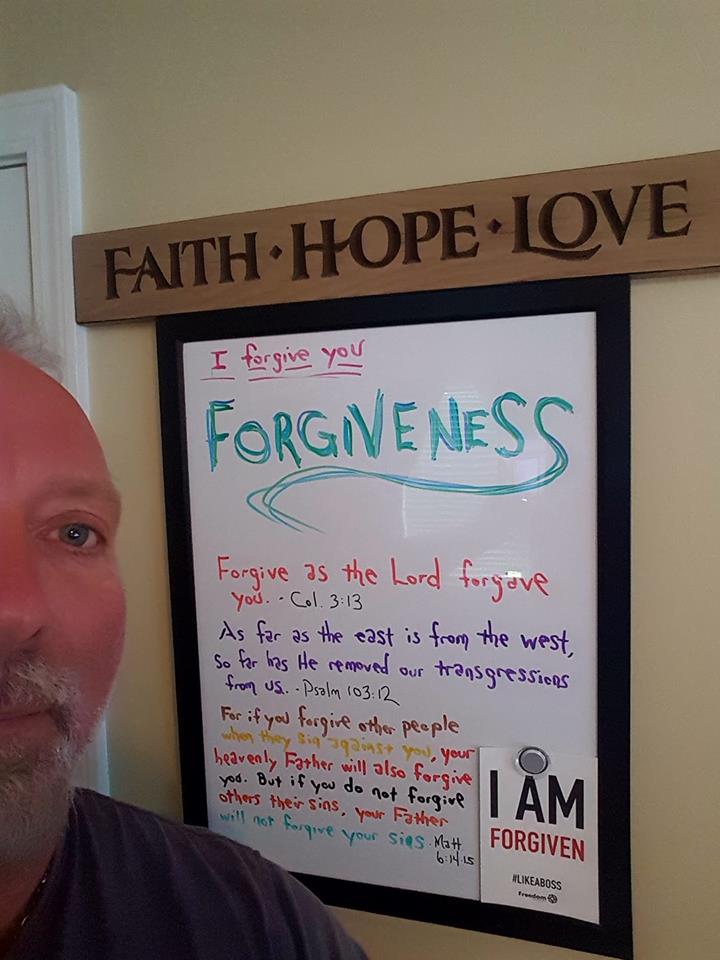 FAITH · HOPE · LOVE
I forgive you
FORGIVENESS
Forgive as the Lord forgave
you. - Col. 3:13
As far as the east is from the west,
So far has He removed our transgressions
from us. - Psalm 103:12
For if you forgive other people
when they sin against you, your
heavenly Father will also forgive
you. But if you do not forgive
others their sins, your Father
will not forgive your sins. Matt
6:14.15
I AM
FORGIVEN
#LIKEABOSS
Freedom